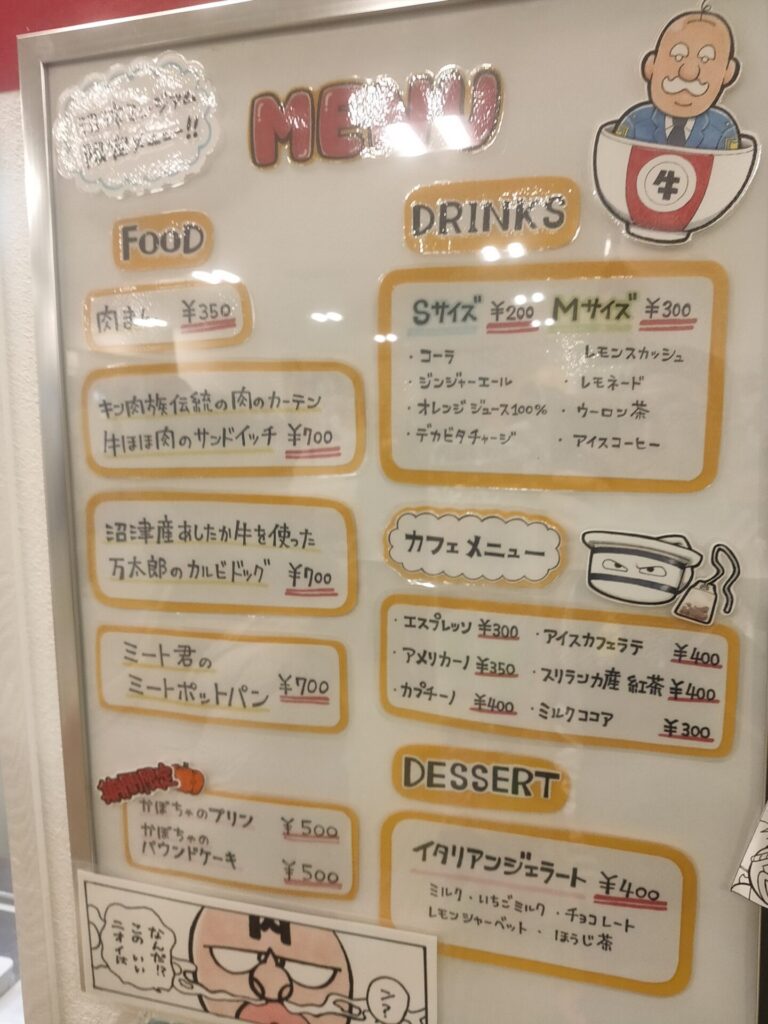 沼津
限定メニュー!!
MENU
牛
FOOD
肉まん ¥350
キン肉族伝統の肉のカーテン
牛ほほ肉のサンドイッチ ¥700
沼津産あしたか牛を使った
万太郎のカルビドッグ ¥700
ミート君の
ミートポットパン ¥700
期間限定
かぼちゃのプリン ¥500
かぼちゃの
パウンドケーキ ¥500
なんだ!?
このいい
ニオイは
肉
DRINKS
Sサイズ ¥200 Mサイズ ¥300
・コーラ
・ジンジャーエール
・オレンジジュース100%
・デカビタチャージ
レモンスカッシュ
・レモネード
・ウーロン茶
・アイスコーヒー
カフェメニュー
・エスプレッソ ¥300
・アメリカーノ ¥350
・カプチーノ ¥400
・アイスカフェラテ ¥400
・スリランカ産 紅茶 ¥400
・ミルクココア ¥300
DESSERT
イタリアンジェラート ¥400
ミルク・いちごミルク・チョコレート
レモンシャーベット・ほうじ茶